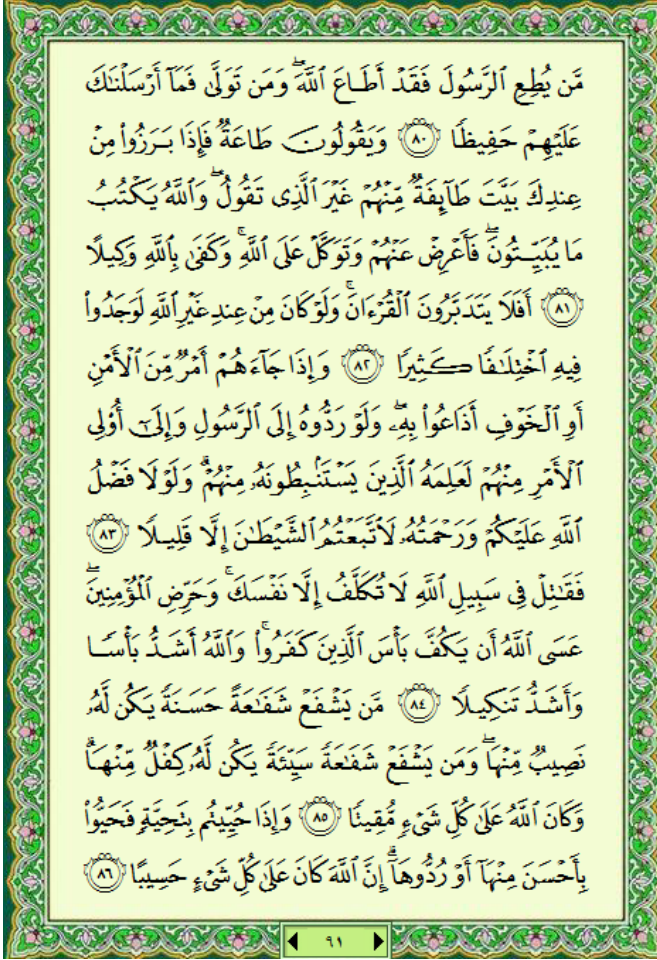 مَّن يُطِعِ ٱلرَّسُولَ فَقَدْ أَطَاعَ ٱللَّهَ ۖ وَمَن تَوَلَّىٰ فَمَآ أَرْسَلْنَٰكَ
عَلَيْهِمْ حَفِيظًا ٨٠ وَيَقُولُونَ طَاعَةٌ فَإِذَا بَرَزُوا۟ مِنْ
عِندِكَ بَيَّتَ طَآئِفَةٌ مِّنْهُمْ غَيْرَ ٱلَّذِى تَقُولُ ۖ وَٱللَّهُ يَكْتُبُ
مَا يُبَيِّتُونَ ۖ فَأَعْرِضْ عَنْهُمْ وَتَوَكَّلْ عَلَى ٱللَّهِ ۚ وَكَفَىٰ بِٱللَّهِ وَكِيلًا
٨١ أَفَلَا يَتَدَبَّرُونَ ٱلْقُرْءَانَ ۚ وَلَوْ كَانَ مِنْ عِندِ غَيْرِ ٱللَّهِ لَوَجَدُوا۟
فِيهِ ٱخْتِلَٰفًا كَثِيرًا ٨٢ وَإِذَا جَآءَهُمْ أَمْرٌ مِّنَ ٱلْأَمْنِ
أَوِ ٱلْخَوْفِ أَذَاعُوا۟ بِهِۦ ۖ وَلَوْ رَدُّوهُ إِلَى ٱلرَّسُولِ وَإِلَىٰٓ أُو۟لِى
ٱلْأَمْرِ مِنْهُمْ لَعَلِمَهُ ٱلَّذِينَ يَسْتَنۢبِطُونَهُۥ مِنْهُمْ ۗ وَلَوْلَا فَضْلُ
ٱللَّهِ عَلَيْكُمْ وَرَحْمَتُهُۥ لَٱتَّبَعْتُمُ ٱلشَّيْطَٰنَ إِلَّا قَلِيلًا ٨٣
فَقَٰتِلْ فِى سَبِيلِ ٱللَّهِ لَا تُكَلَّفُ إِلَّا نَفْسَكَ ۚ وَحَرِّضِ ٱلْمُؤْمِنِينَ ۖ
عَسَى ٱللَّهُ أَن يَكُفَّ بَأْسَ ٱلَّذِينَ كَفَرُوا۟ ۚ وَٱللَّهُ أَشَدُّ بَأْسًا
وَأَشَدُّ تَنكِيلًا ٨٤ مَّن يَشْفَعْ شَفَٰعَةً حَسَنَةً يَكُن لَّهُۥ
نَصِيبٌ مِّنْهَا ۖ وَمَن يَشْفَعْ شَفَٰعَةً سَيِّئَةً يَكُن لَّهُۥ كِفْلٌ مِّنْهَا ۗ
وَكَانَ ٱللَّهُ عَلَىٰ كُلِّ شَىْءٍ مُّقِيتًا ٨٥ وَإِذَا حُيِّيتُم بِتَحِيَّةٍ فَحَيُّوا۟
بِأَحْسَنَ مِنْهَآ أَوْ رُدُّوهَآ ۗ إِنَّ ٱللَّهَ كَانَ عَلَىٰ كُلِّ شَىْءٍ حَسِيبًا ٨٦
٩١